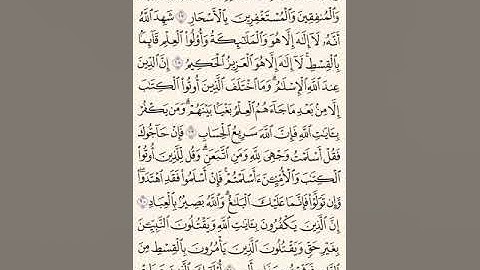 وَٱلْمُنفِقِينَ وَٱلْمُسْتَغْفِرِينَ بِٱلْأَسْحَارِ ١٧ شَهِدَ ٱللَّهُ
أَنَّهُۥ لَآ إِلَٰهَ إِلَّا هُوَ وَٱلْمَلَٰٓئِكَةُ وَأُوْلُوا۟ ٱلْعِلْمِ قَآئِمًۢا
بِٱلْقِسْطِ ۚ لَآ إِلَٰهَ إِلَّا هُوَ ٱلْعَزِيزُ ٱلْحَكِيمُ ١٨ إِنَّ ٱلدِّينَ
عِندَ ٱللَّهِ ٱلْإِسْلَٰمُ ۗ وَمَا ٱخْتَلَفَ ٱلَّذِينَ أُوتُوا۟ ٱلْكِتَٰبَ
إِلَّا مِنۢ بَعْدِ مَا جَآءَهُمُ ٱلْعِلْمُ بَغْيًۢا بَيْنَهُمْ ۗ وَمَن يَكْفُرْ
بِـَٔايَٰتِ ٱللَّهِ فَإِنَّ ٱللَّهَ سَرِيعُ ٱلْحِسَابِ ١٩ فَإِنْ حَآجُّوكَ
فَقُلْ أَسْلَمْتُ وَجْهِىَ لِلَّهِ وَمَنِ ٱتَّبَعَنِ ۗ وَقُل لِّلَّذِينَ أُوتُوا۟
ٱلْكِتَٰبَ وَٱلْأُمِّيِّـۧنَ ءَأَسْلَمْتُمْ ۚ فَإِنْ أَسْلَمُوا۟ فَقَدِ ٱهْتَدَوا۟ ۖ
وَّإِن تَوَلَّوْا۟ فَإِنَّمَا عَلَيْكَ ٱلْبَلَٰغُ ۗ وَٱللَّهُ بَصِيرٌۢ بِٱلْعِبَادِ ٢٠
إِنَّ ٱلَّذِينَ يَكْفُرُونَ بِـَٔايَٰتِ ٱللَّهِ وَيَقْتُلُونَ ٱلنَّبِيِّـۧنَ
بِغَيْرِ حَقٍّ وَيَقْتُلُونَ ٱلَّذِينَ يَأْمُرُونَ بِٱلْقِسْطِ مِنَ